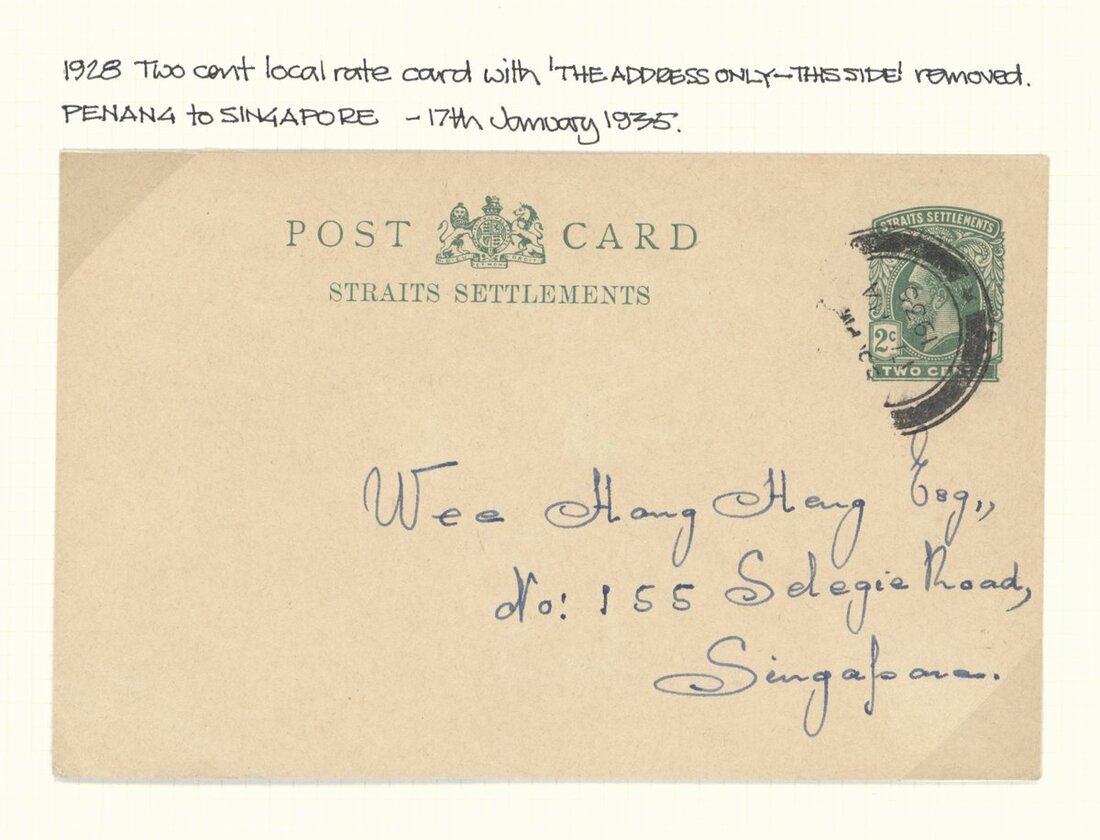 1928 Two cent local rate card with 'THE ADDRESS ONLY—THIS SIDE' removed.
PENANG to SINGAPORE – 17th January 1935.
POST CARD
STRAITS SETTLEMENTS
STRAITS SETTLEMENTS
2c
TWO CENTS
PM
Wee Hong Heng Esq.,,
No: 155 Selegie Road,
Singapore.